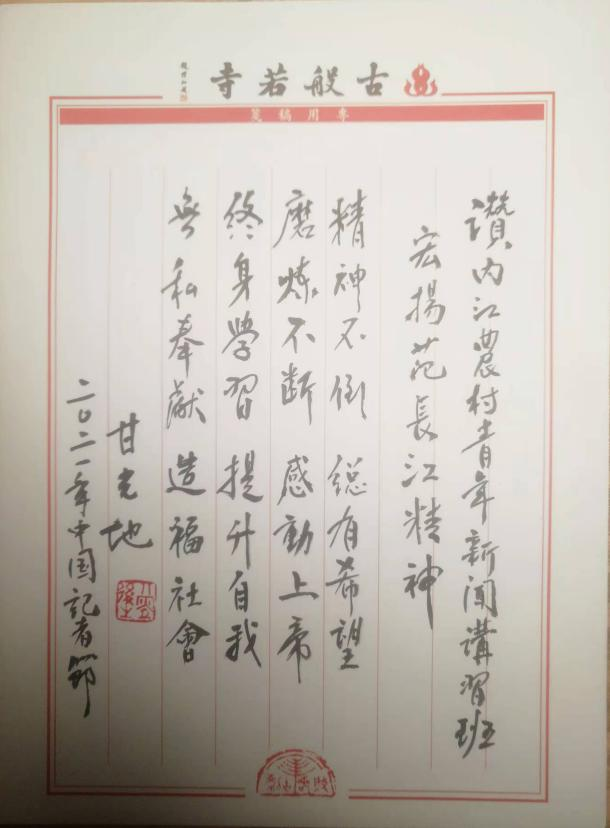 古般若寺
專用稿箋
讚内江農村青年新聞講習班
宏揚范長江精神
精神不倒 總有希望
磨炼不断 感動上帝
終身學習 提升自我
無私奉献 造福社會
甘光地
二〇二一年中国記者節